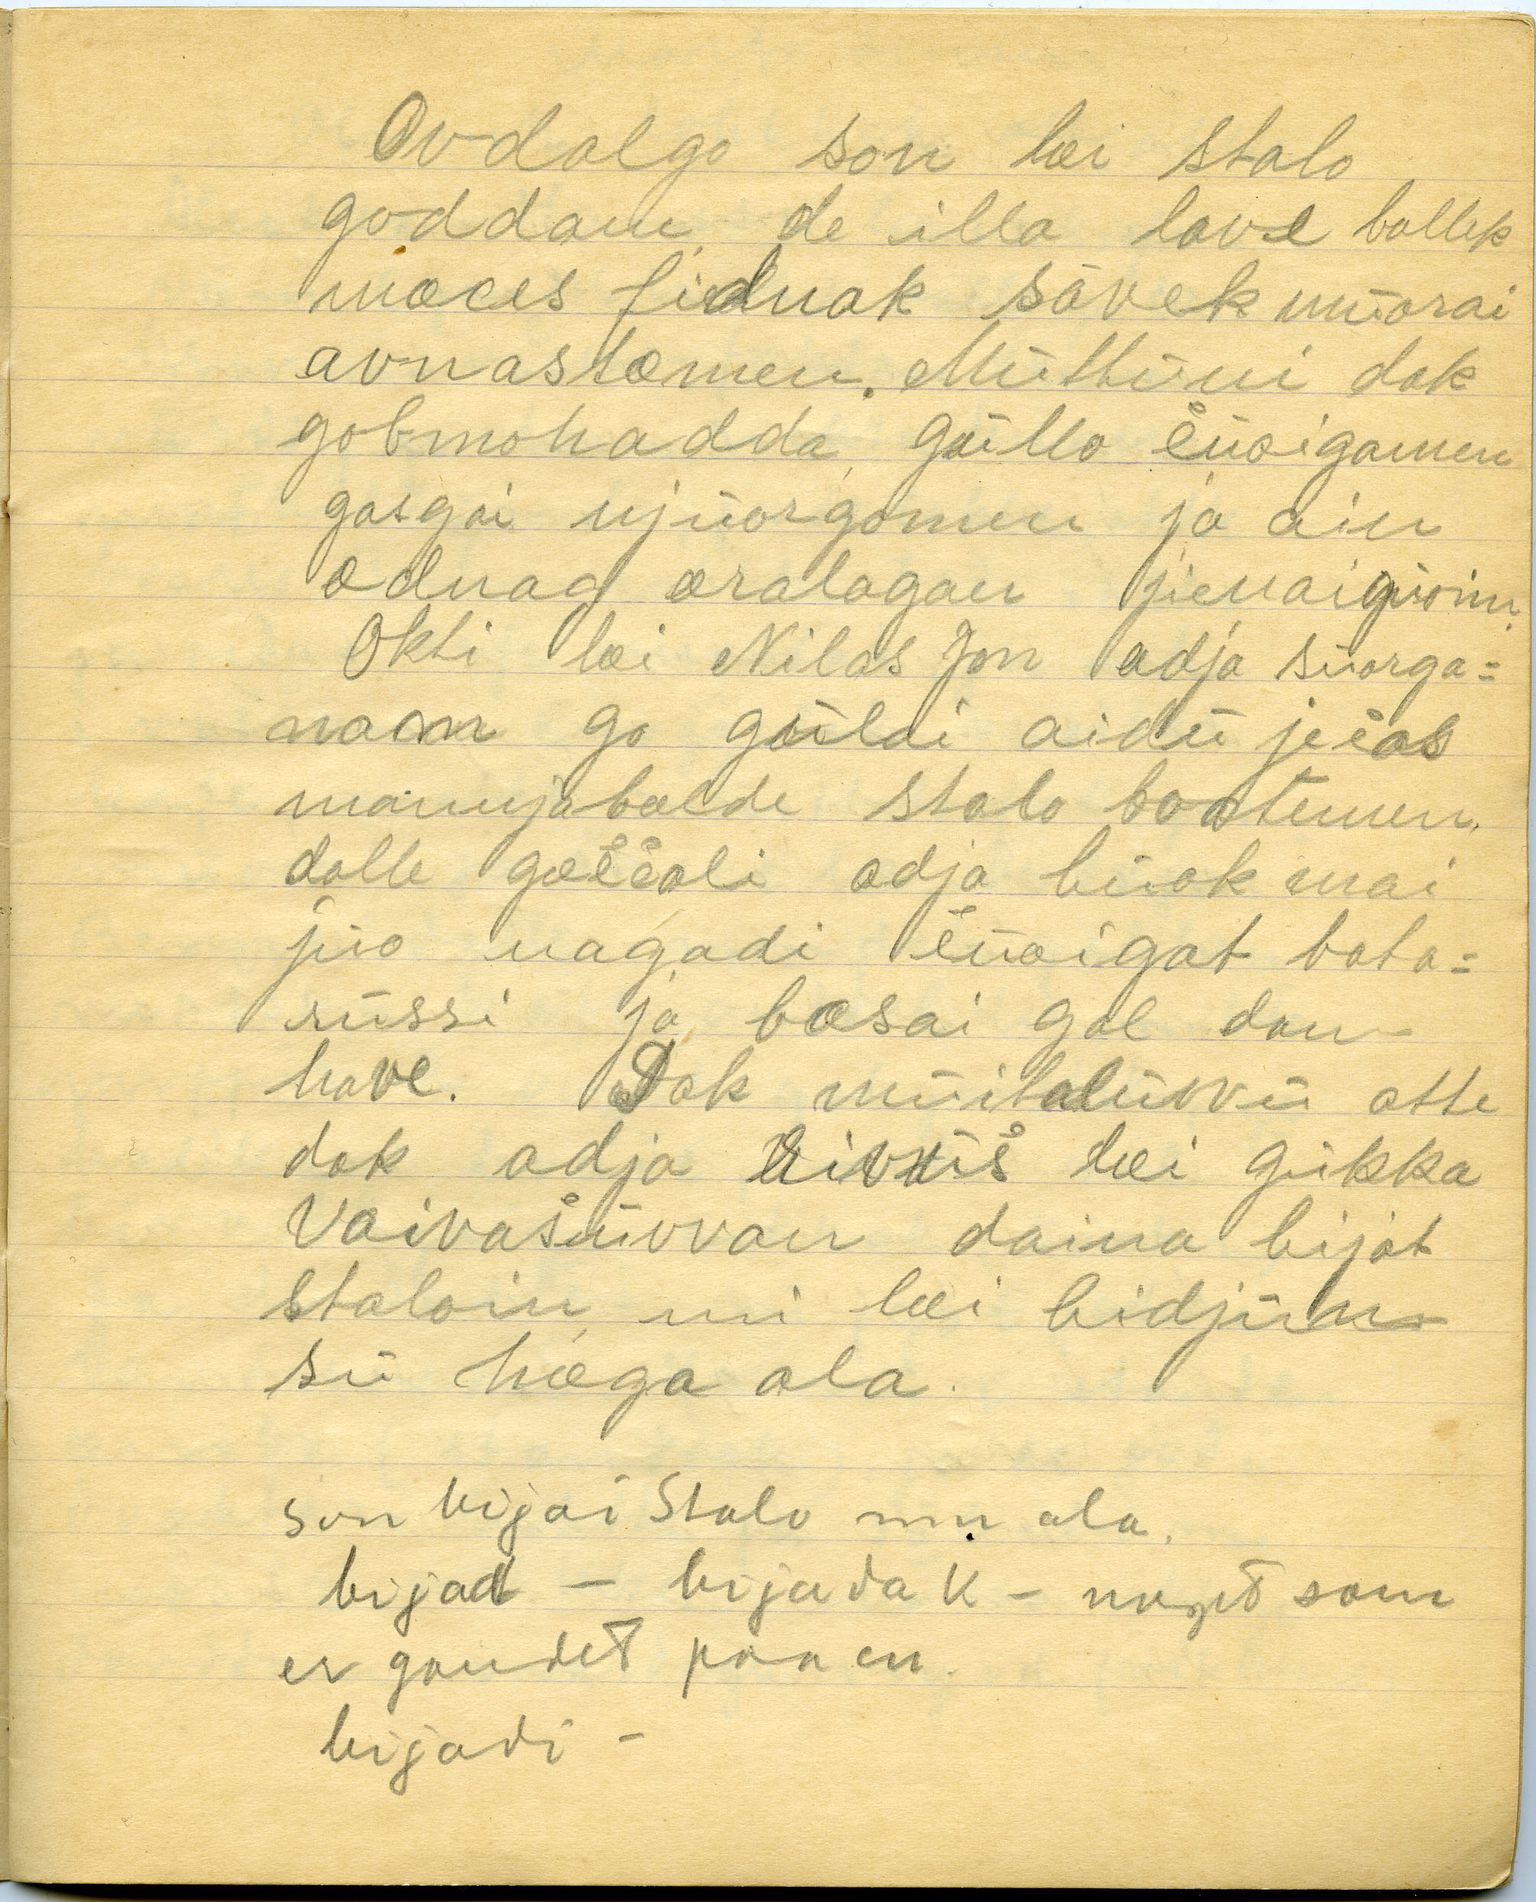 Ovdalgo son læi stalo
goddam, de illa lave ballek
mæces fidnak sávek muorai
avnastæmen. Muttuni dak
gobmohadda, gullo čuoigamen
gasgai njuorgomen ja ain
ædnag æralagan jienaiguoim.
Okti læi Nilas Jon adja suorga=
nam go gulai aidu ječas
mannjabælde stalo boatemen.
dalle gæččali adja buok mai
juo nagadi čuoigat bata=
russi ja bæsai gal dan
have. Dak muitaluvvu atte
dak adja rivuš læi gukka
vaivašuvvan daina bijat
staloin, mi læi bidjum
su hæga ala.
son bijai Stalo mu ala.
bijad — bijadak – noget som
er gandet paa en.
bijadi –